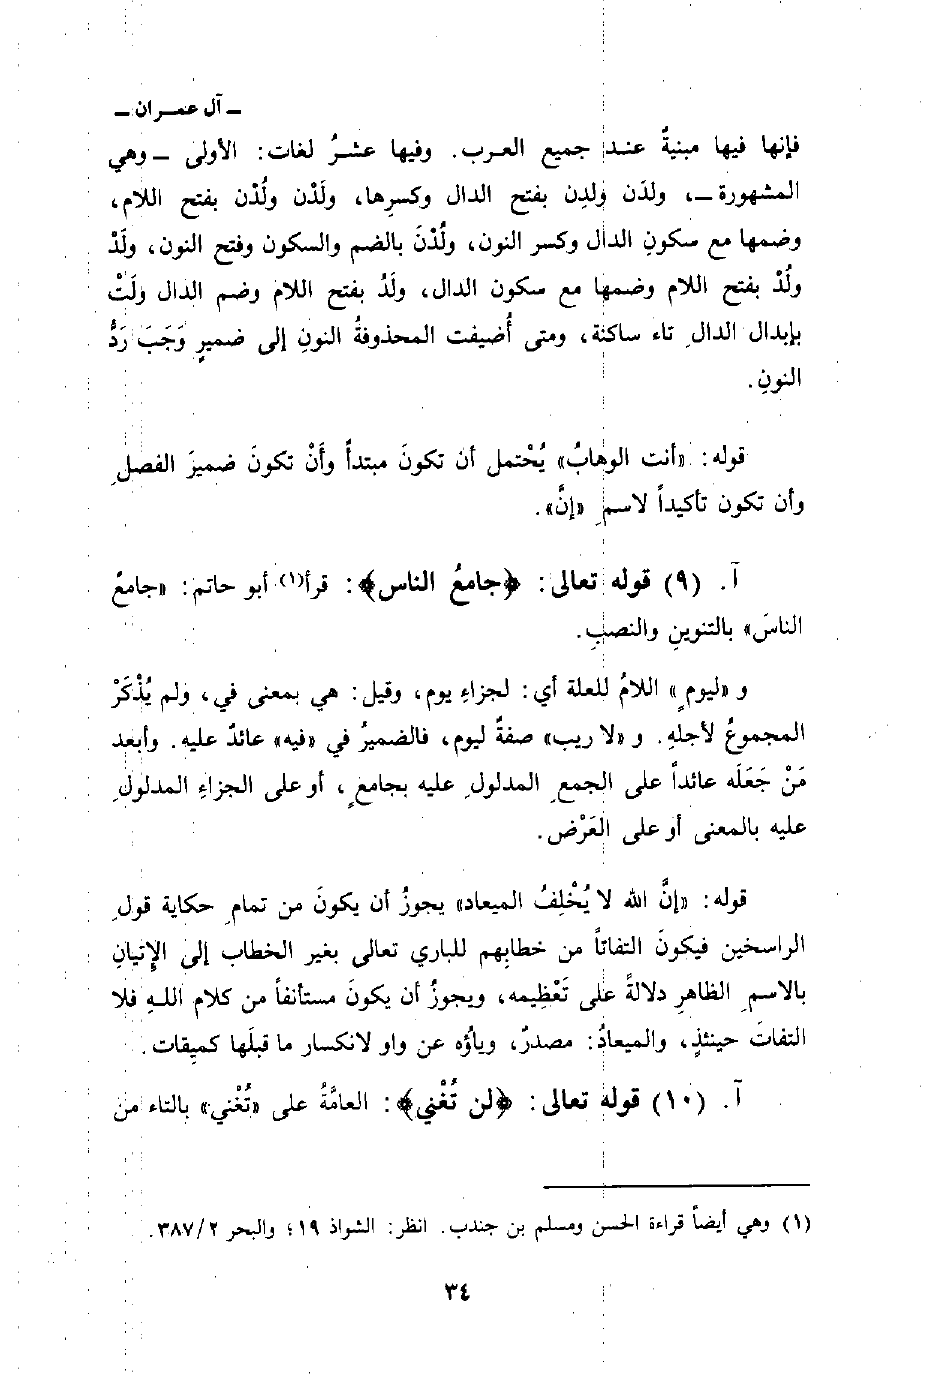 ـ آل عمـران ـ
فإنها فيها مبنيةٌ عند جميع العرب. وفيها عشرُ لغات: الأولى ـ وهي
المشهورة ـ، ولدَن ولدِن بفتح الدال وكسرِها، ولَدْن ولُدْن بفتح اللام،
وضمها مع سكونِ الدال وكسر النون، ولُدْنَ بالضم والسكون وفتح النون، ولَدْ
ولُدْ بفتح اللام وضمها مع سكون الدال، ولَدُ بفتح اللام وضم الدال ولَتْ
بإبدال الدالِ تاء ساكنة، ومتى أُضيفت المحذوفةُ النونِ إلى ضميرٍ وَجَبَ رَدُّ
النونِ.
قوله: «أنت الوهابُ» يُحْتمل أن تكونَ مبتدأً وأَنْ تكونَ ضميرَ الفصلِ
وأن تكون تأكيداً لاسمِ «إنَّ».
آ. (٩) قوله تعالى: ﴿جامعُ الناس﴾: قرأ(١) أبو حاتم: «جامعُ
الناسَ» بالتنوينِ والنصبِ.
و «ليومٍ» اللامُ للعلة أي: لجزاءِ يوم، وقيل: هي بمعنى في، ولم يُذْكَرْ
المجموعُ لأجلهِ. و «لا ريب» صفةٌ ليوم، فالضميرُ في «فيه» عائدٌ عليه. وأبعد
مَنْ جَعَلَه عائداً على الجمعِ المدلولِ عليه بجامعٍ، أو على الجزاءِ المدلولِ
عليه بالمعنى أو على العَرْض.
قوله: «إنَّ الله لا يُخْلِفُ الميعاد» يجوزُ أن يكونَ من تمامِ حكاية قولِ
الراسخين فيكونَ التفاتاً من خطابِهم للباري تعالى بغير الخطاب إلى الإِتيانِ
بالاسمِ الظاهرِ دلالةً على تَعْظِيمه، ويجوزُ أن يكونَ مستأنفاً من كلام اللهِ فلا
التفاتَ حينئذٍ، والميعادُ: مصدرٌ، وياؤُه عن واو لانكسار ما قبلَها كمِيقات.
آ. (١٠) قوله تعالى: ﴿لن تُغْني﴾: العامَّةُ على «تُغْني» بالتاء من
(١) وهي أيضاً قراءة الحسن ومسلم بن جندب. انظر: الشواذ ١٩؛ والبحر ٢/٣٨٧.
٣٤